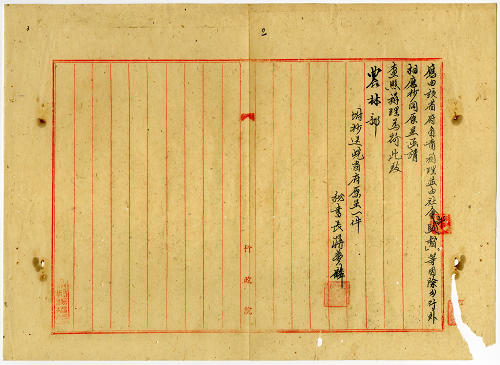 應由該省府負責辦理並由社會部督等因除分行外
相應抄同原呈函請
查照辦理為荷此致
農林部
附抄送皖省府原呈一件
秘書長蔣夢麟
行政院